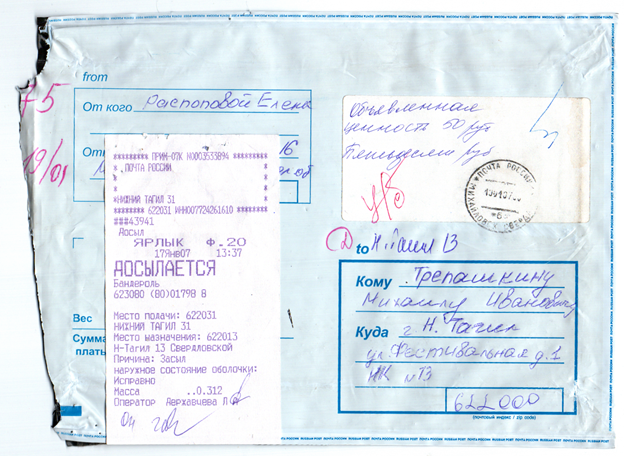 from
От кого Распоповой Елена
16
Объявленная
ценность 50 руб
Пятьдесят руб
у/б
75
19/01
********* ПРИМ-07К N0003533894 *********
ПОЧТА РОССИИ
*НИЖНИЙ ТАГИЛ 31
******** 622031 ИНН007724261610 ********
###43941
Досыл
ЯРЛЫК Ф.20
17Янв07 13:37
ДОСЫЛАЕТСЯ
Бандероль
623080 (80)01798 8
Место подачи: 622031
НИЖНИЙ ТАГИЛ 31
Место назначения: 622013
Н-Тагил 13 Свердловской
Причина: Засыл
наружное состояние оболочки:
Исправно
Масса ..0.312
Оператор Державчева Л
ПОЧТА РОССИИ
Д
to Н Тагил 13
Кому Трепашкину
Михаилу Ивановичу
Куда г. Н. Тагил
ул. Фестивальная д. 1
622000
(почтовый индекс / zip code)
Вес
Сумма
платы